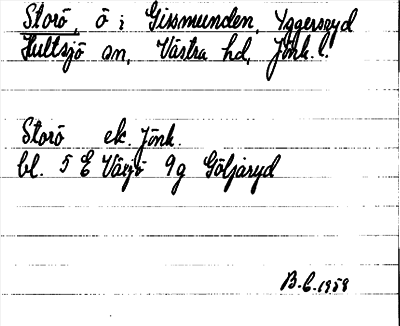 Storö, ö i Gissmunden, Yggersryd
Hultsjö sn, Västra hd, Jönk. l.
Storö ek. Jönk.
bl. 5 E Växjö 9g Göljaryd
B.C. 1958